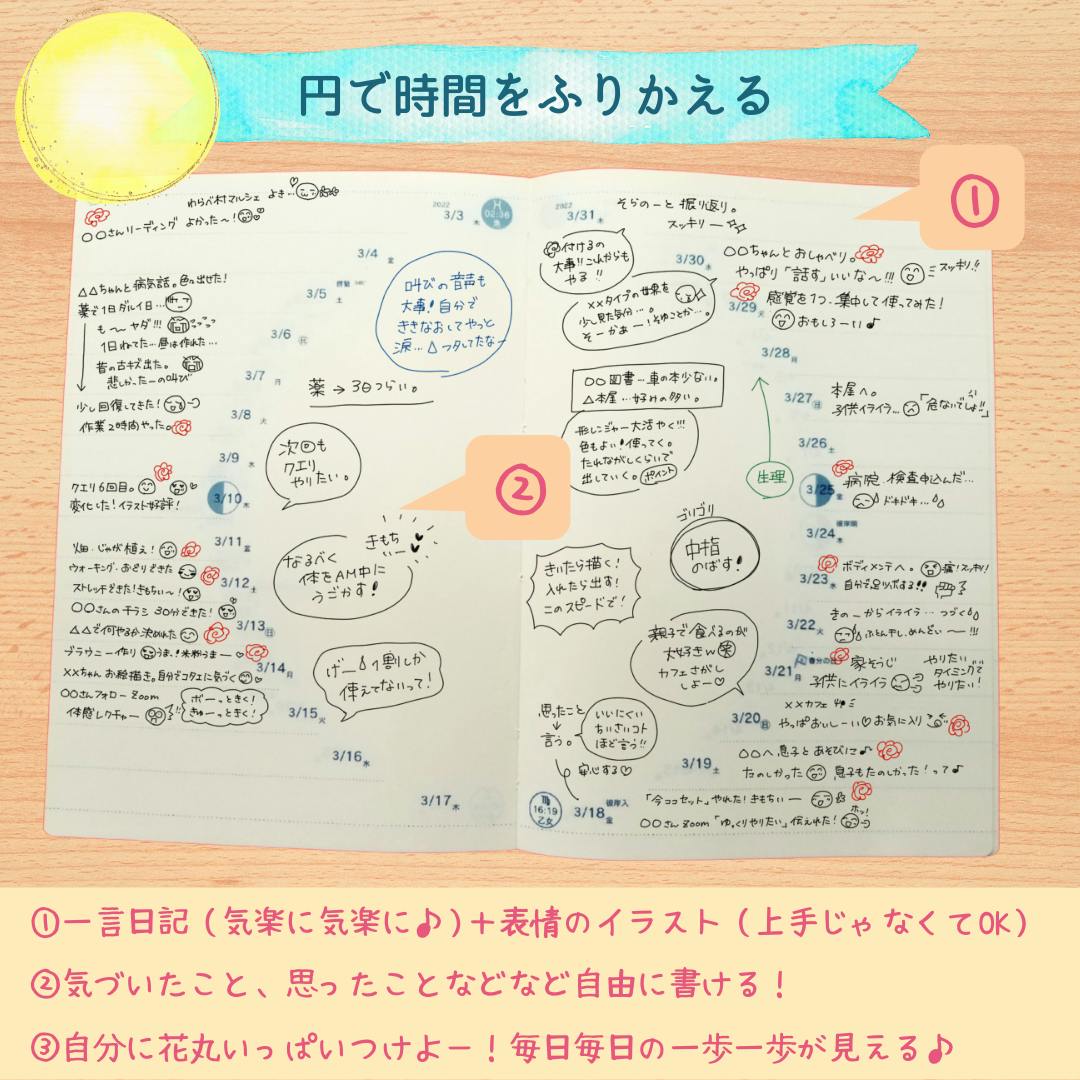 円で時間をふりかえる
①
わらべ村マルシェ よき…
〇〇さんリーディング よかった〜!
2022
3/3 木
02:36
魚
3/4 金
△△ちゃんと病気話。色っ出せた!
3/5 土
薬で1日ダルイ日…
も〜ヤダ!!!
3/6 日
1日ねてた…昼は作れた…
昔の古キズ出た。
悲しかったーの叫び
3/7 月
少し回復してきた!
作業2時間やった。
3/8 火
3/9 水
クエリ6回目。
変化した!イラスト好評!
3/10 木
3/11 金
畑・じゃが植え!
ウォーキング・おどりできた
3/12 土
ストレッチできた!きもちい〜!
〇〇さんのチラシ 30分できた!
3/13 日
△△で何やるか決めれた
ブラウニー作り うま!米粉うまー
3/14 月
××ちゃんお絵描き。自分でコタエに気づく
〇〇さんフォローzoom
体感レクチャー
ボーっときく!
ぎゅーっときく!
3/15 火
3/16 水
3/17 木
叫びの音声も
大事!自分で
ききなおしてやっと
涙…
薬→3日つらい。
次回も
クエリ
やりたい。
②
きもち
いー
なるべく
体をAM中に
うごかす!
げー 1割しか
使えてないって!
2022
3/31 木
そらのーと振り返り。
スッキリー
付けるの
大事!!これからも
やる!!
3/30 水
〇〇ちゃんとおしゃべり。
やっぱり「話す」いいな〜!!!
スッキリ!!
××タイプの世界を
少し見た気分…。
そーかぁー!そゆことか…。
3/29 火
感覚を1つ、集中して使ってみた!
おもしろーい♪
3/28 月
〇〇図書…車の本少ない。
△本屋…好みの多い。
3/27 日
本屋へ。
子供イライラ…
「危ないでしょ!!」
形レンジャー大活やく!!!
色もよい!使ってく。
たれながしくらいで
出していく。
ポイント
3/26 土
生理
3/25 金
病院、検査申込んだ…
ドキドキ…
3/24 木
ゴリゴリ
中指
のばす!
3/23 水
ボディメンテへ。
痛!スッキリ!
自分で足ツボする!!
きいたら描く!
入れたら出す!
このスピードで!
3/22 火
きのーからイライラ…つづく
ふとん干し、めんどい〜!!!
親子で食べるのが
大好きw 笑
カフェさがし
しよー♡
3/21 月
春分の日
家そうじ
子供にイライラ
やりたい
タイミングで
やりたい!
3/20 日
××カフェ
やっぱおいしーい♡お気に入り
思ったこと
↓
言う。
いいにくい
ちいさいコト
ほど言う!!
安心する♡
3/19 土
〇〇へ息子とあそびに♪
たのしかった 息子もたのしかった!って♪
16:19
乙女
3/18 金
彼岸入
「今ココセット」やれた!きもちいー
〇〇さんzoom「ゆっくりやりたい」伝えれた!
ホッ!
①一言日記(気楽に気楽に♪)+表情のイラスト(上手じゃなくてOK)
②気づいたこと、思ったことなどなど自由に書ける!
③自分に花丸いっぱいつけよー!毎日毎日の一歩一歩が見える♪